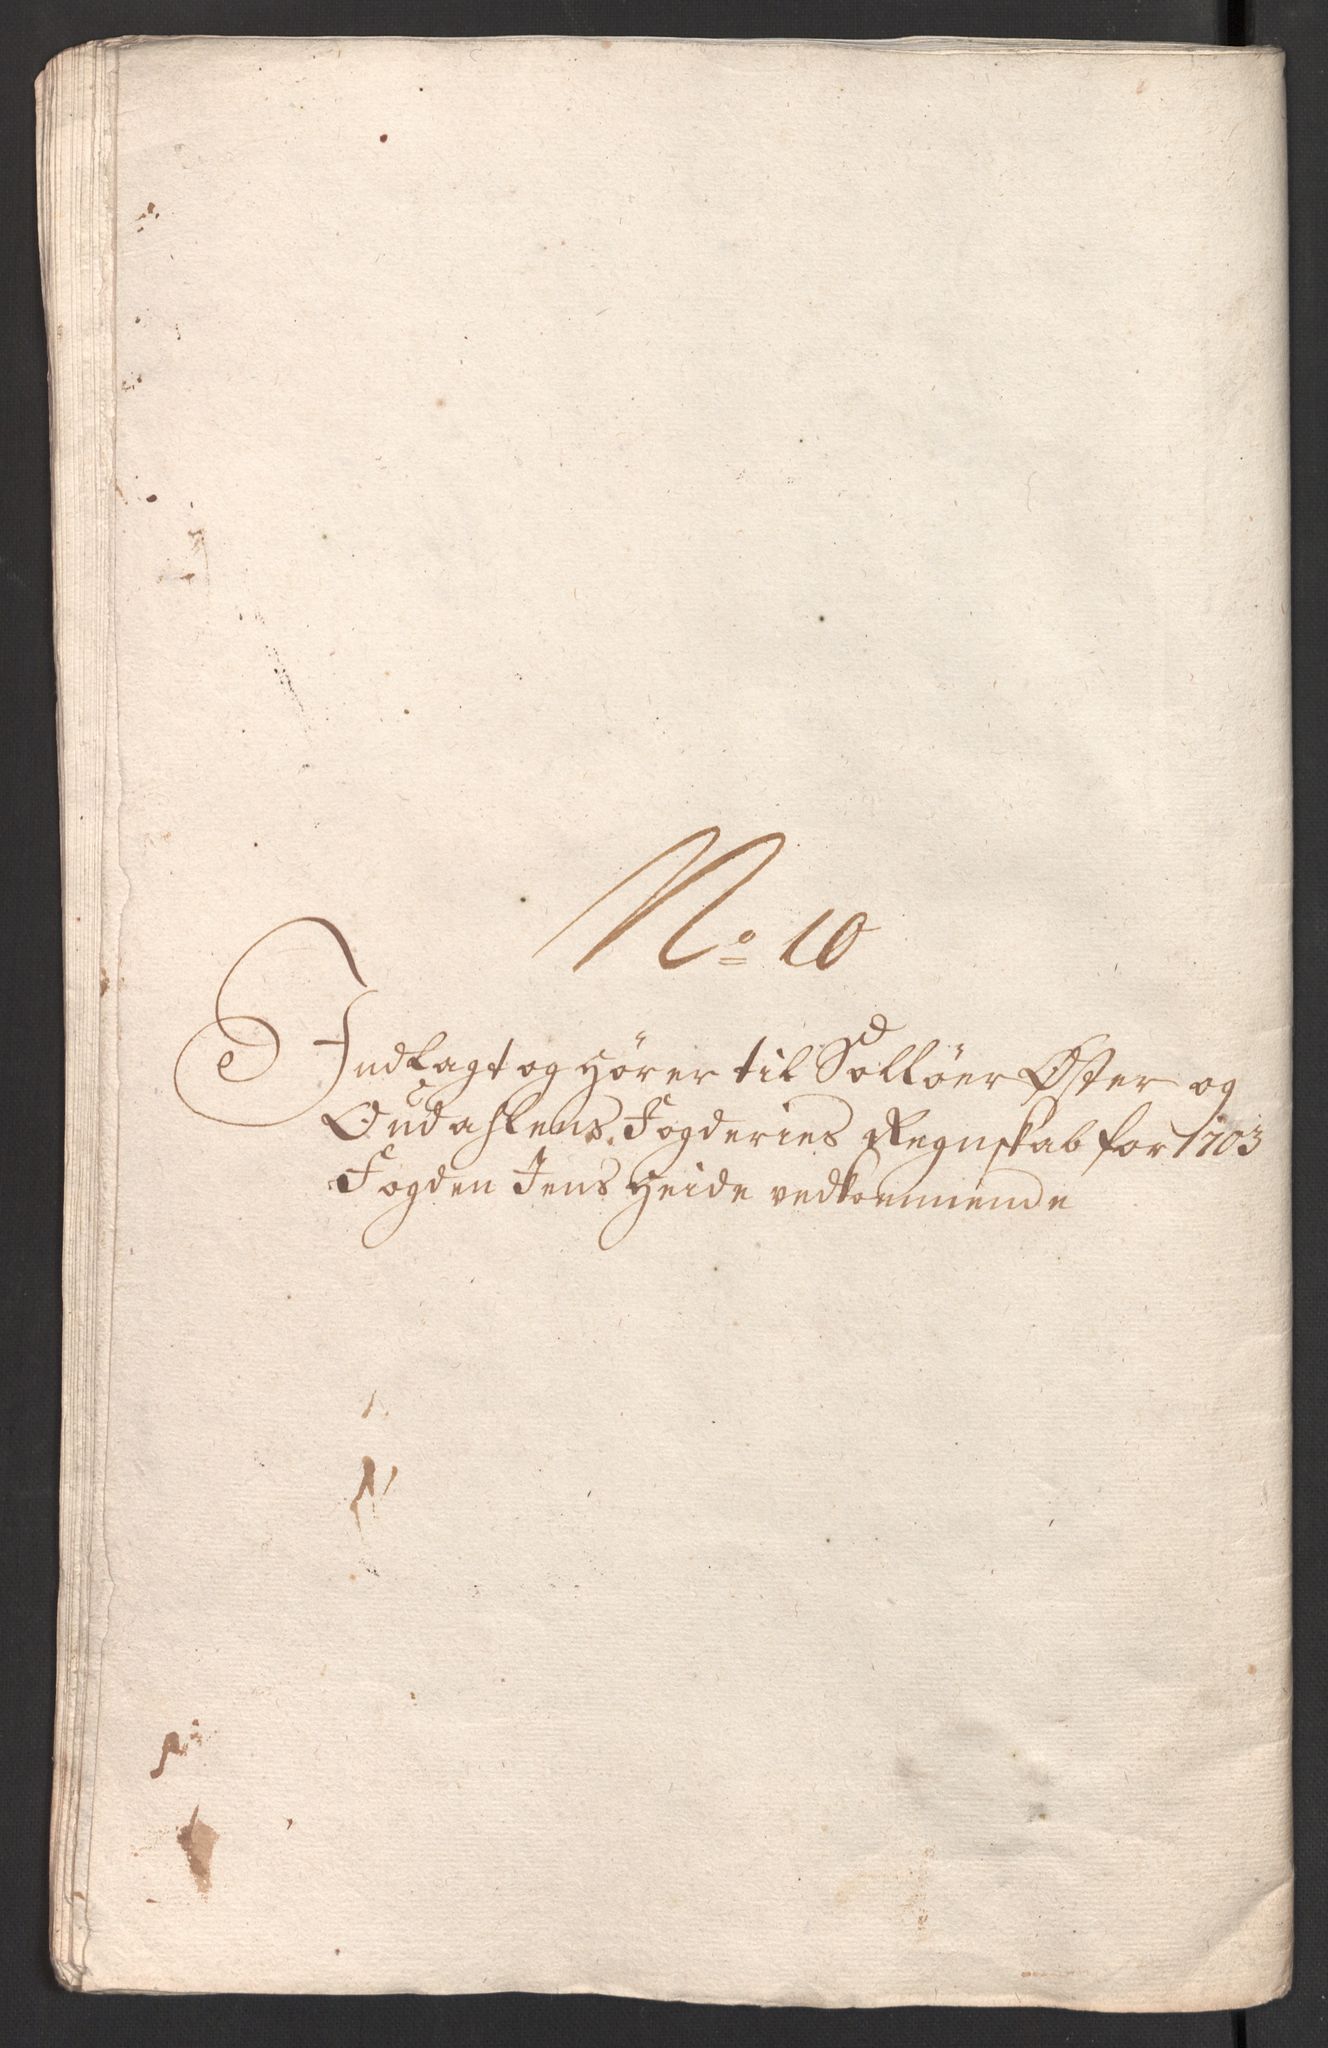 No 10
Indlagt og hører til Solløer Øster og
Oudahlens Fogderies Regnskab for 1703
Fogden Jens Heide vedkommende